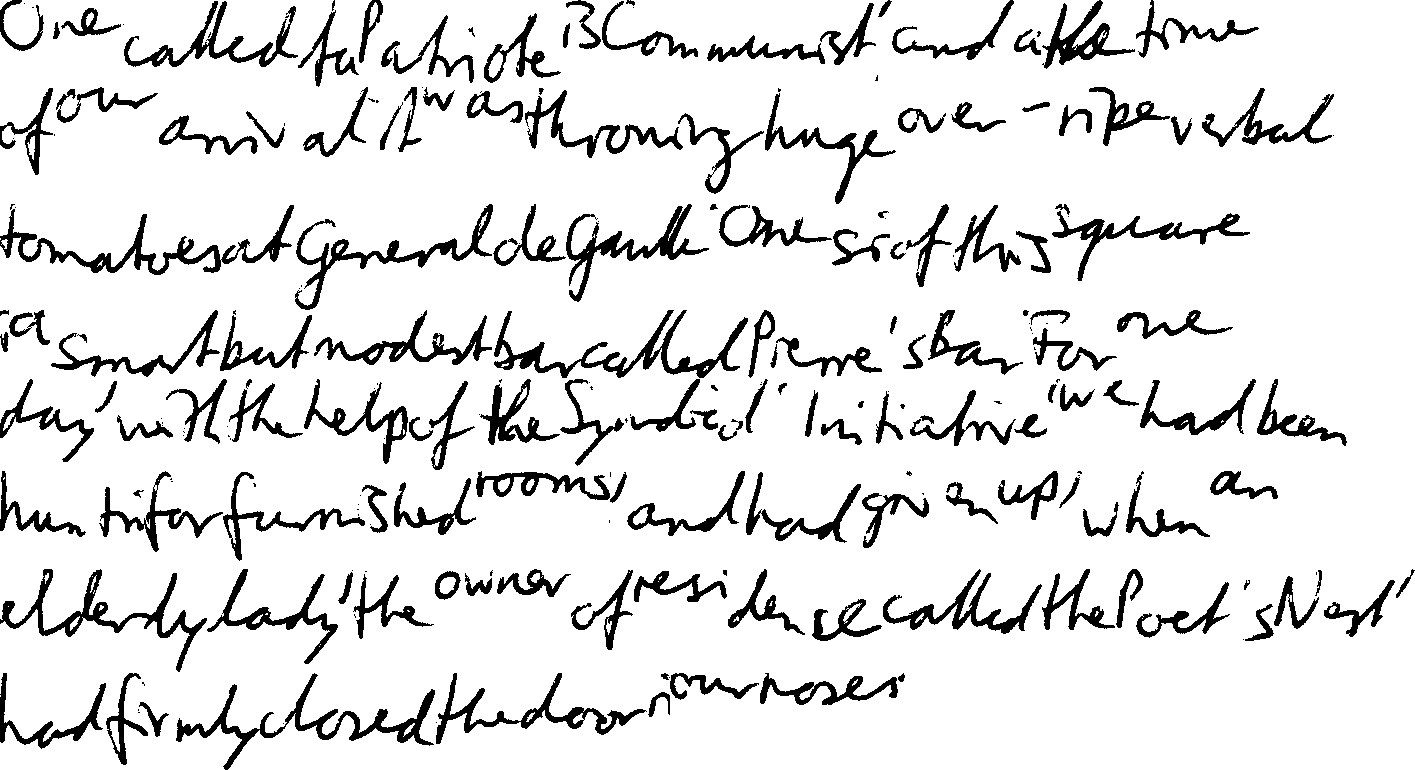 One called la Patriote is Communist, and at the time
of our arrival it was throwing huge over-ripe verbal
tomatoes at General de Gaulle. One si of this square
is a smart but modest bar called Pierre's Bar. For one
day, with the help of the Syndicd' Initiative, we had been
huntin for furnished rooms, and had given up, when an
elderly lady, the owner of residense called the Poet's Nest,
had firmly closed the door in our noses